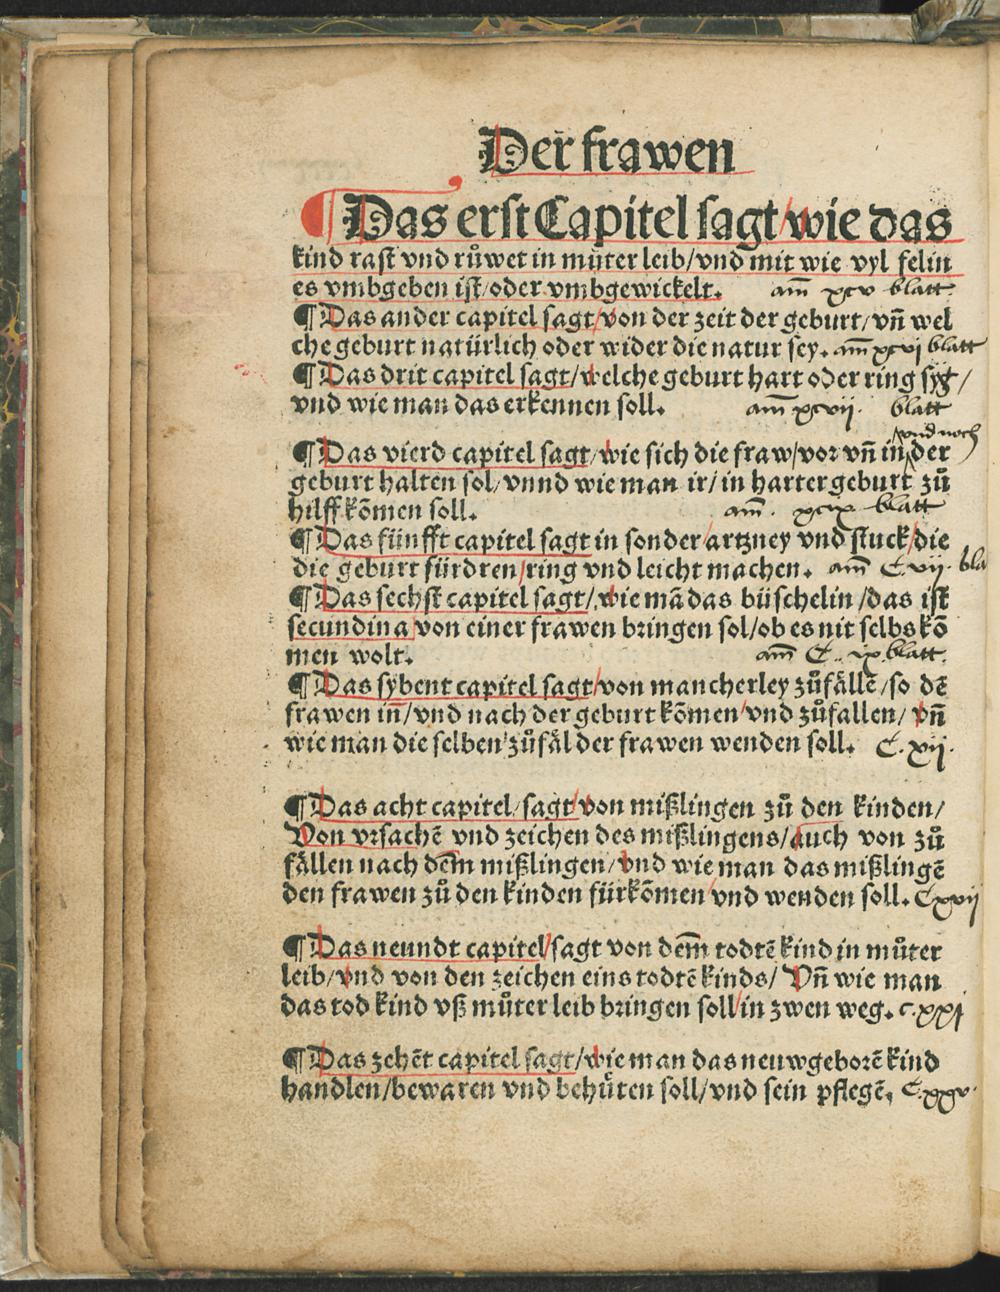 Der frawen
¶ Das erst Capitel sagt/wie das
kind rast vnd růwet in můter leib/vnd mit wie vyl felin
es vmbgeben ist/oder vmbgewickelt. am̄ xcv blatt
¶ Das ander capitel sagt/von der zeit der geburt/vñ wel
che geburt natürlich oder wider die natur sey. am̄ xcvj blatt
¶ Das drit capitel sagt/welche geburt hart oder ring syg/
vnd wie man das erkennen soll. am̄ xcvij. blatt
vnd noch
¶ Das vierd capitel sagt/wie sich die fraw/vor vñ in der
geburt halten sol/vnnd wie man ir/in harter geburt zů
hilff kõmen soll. am̄. xcix blatt
¶ Das fünfft capitel sagt in sonder/artzney vnd stuck/die
die geburt fürdren/ring vnd leicht machen. am̄ C.vij. bla
¶ Das sechst capitel sagt/wie mã das büschelin/das ist
secundina/von einer frawen bringen sol/ob es nit selbs kõ
men wolt. am̄ C. ix blatt.
¶ Das sybent capitel sagt/von mancherley zůfällẽ/so dẽ
frawen iñ/vnd nach der geburt kõmen/vnd zůfallen/vñ
wie man die selben zůfäl der frawen wenden soll. C.xij.
¶ Das acht capitel/sagt/von mißlingen zů den kinden/
Von vrsachẽ vnd zeichen des mißlingens/auch von zů
fällen nach dem̄ mißlingen/vnd wie man das mißlingẽ
den frawen zů den kinden fürkõmen/vnd wenden soll. Cxvij
¶ Das neundt capitel/sagt von dem̄ todtẽ kind in můter
leib/vnd von den zeichen eins todtẽ kinds/Vñ wie man
das tod kind vß můter leib bringen soll/in zwen weg. c.xxj
¶ Das zehẽt capitel sagt/wie man das neuwgeborẽ kind
handlen/bewaren vnd behůten soll/vnd sein pflegẽ. C.xxv.